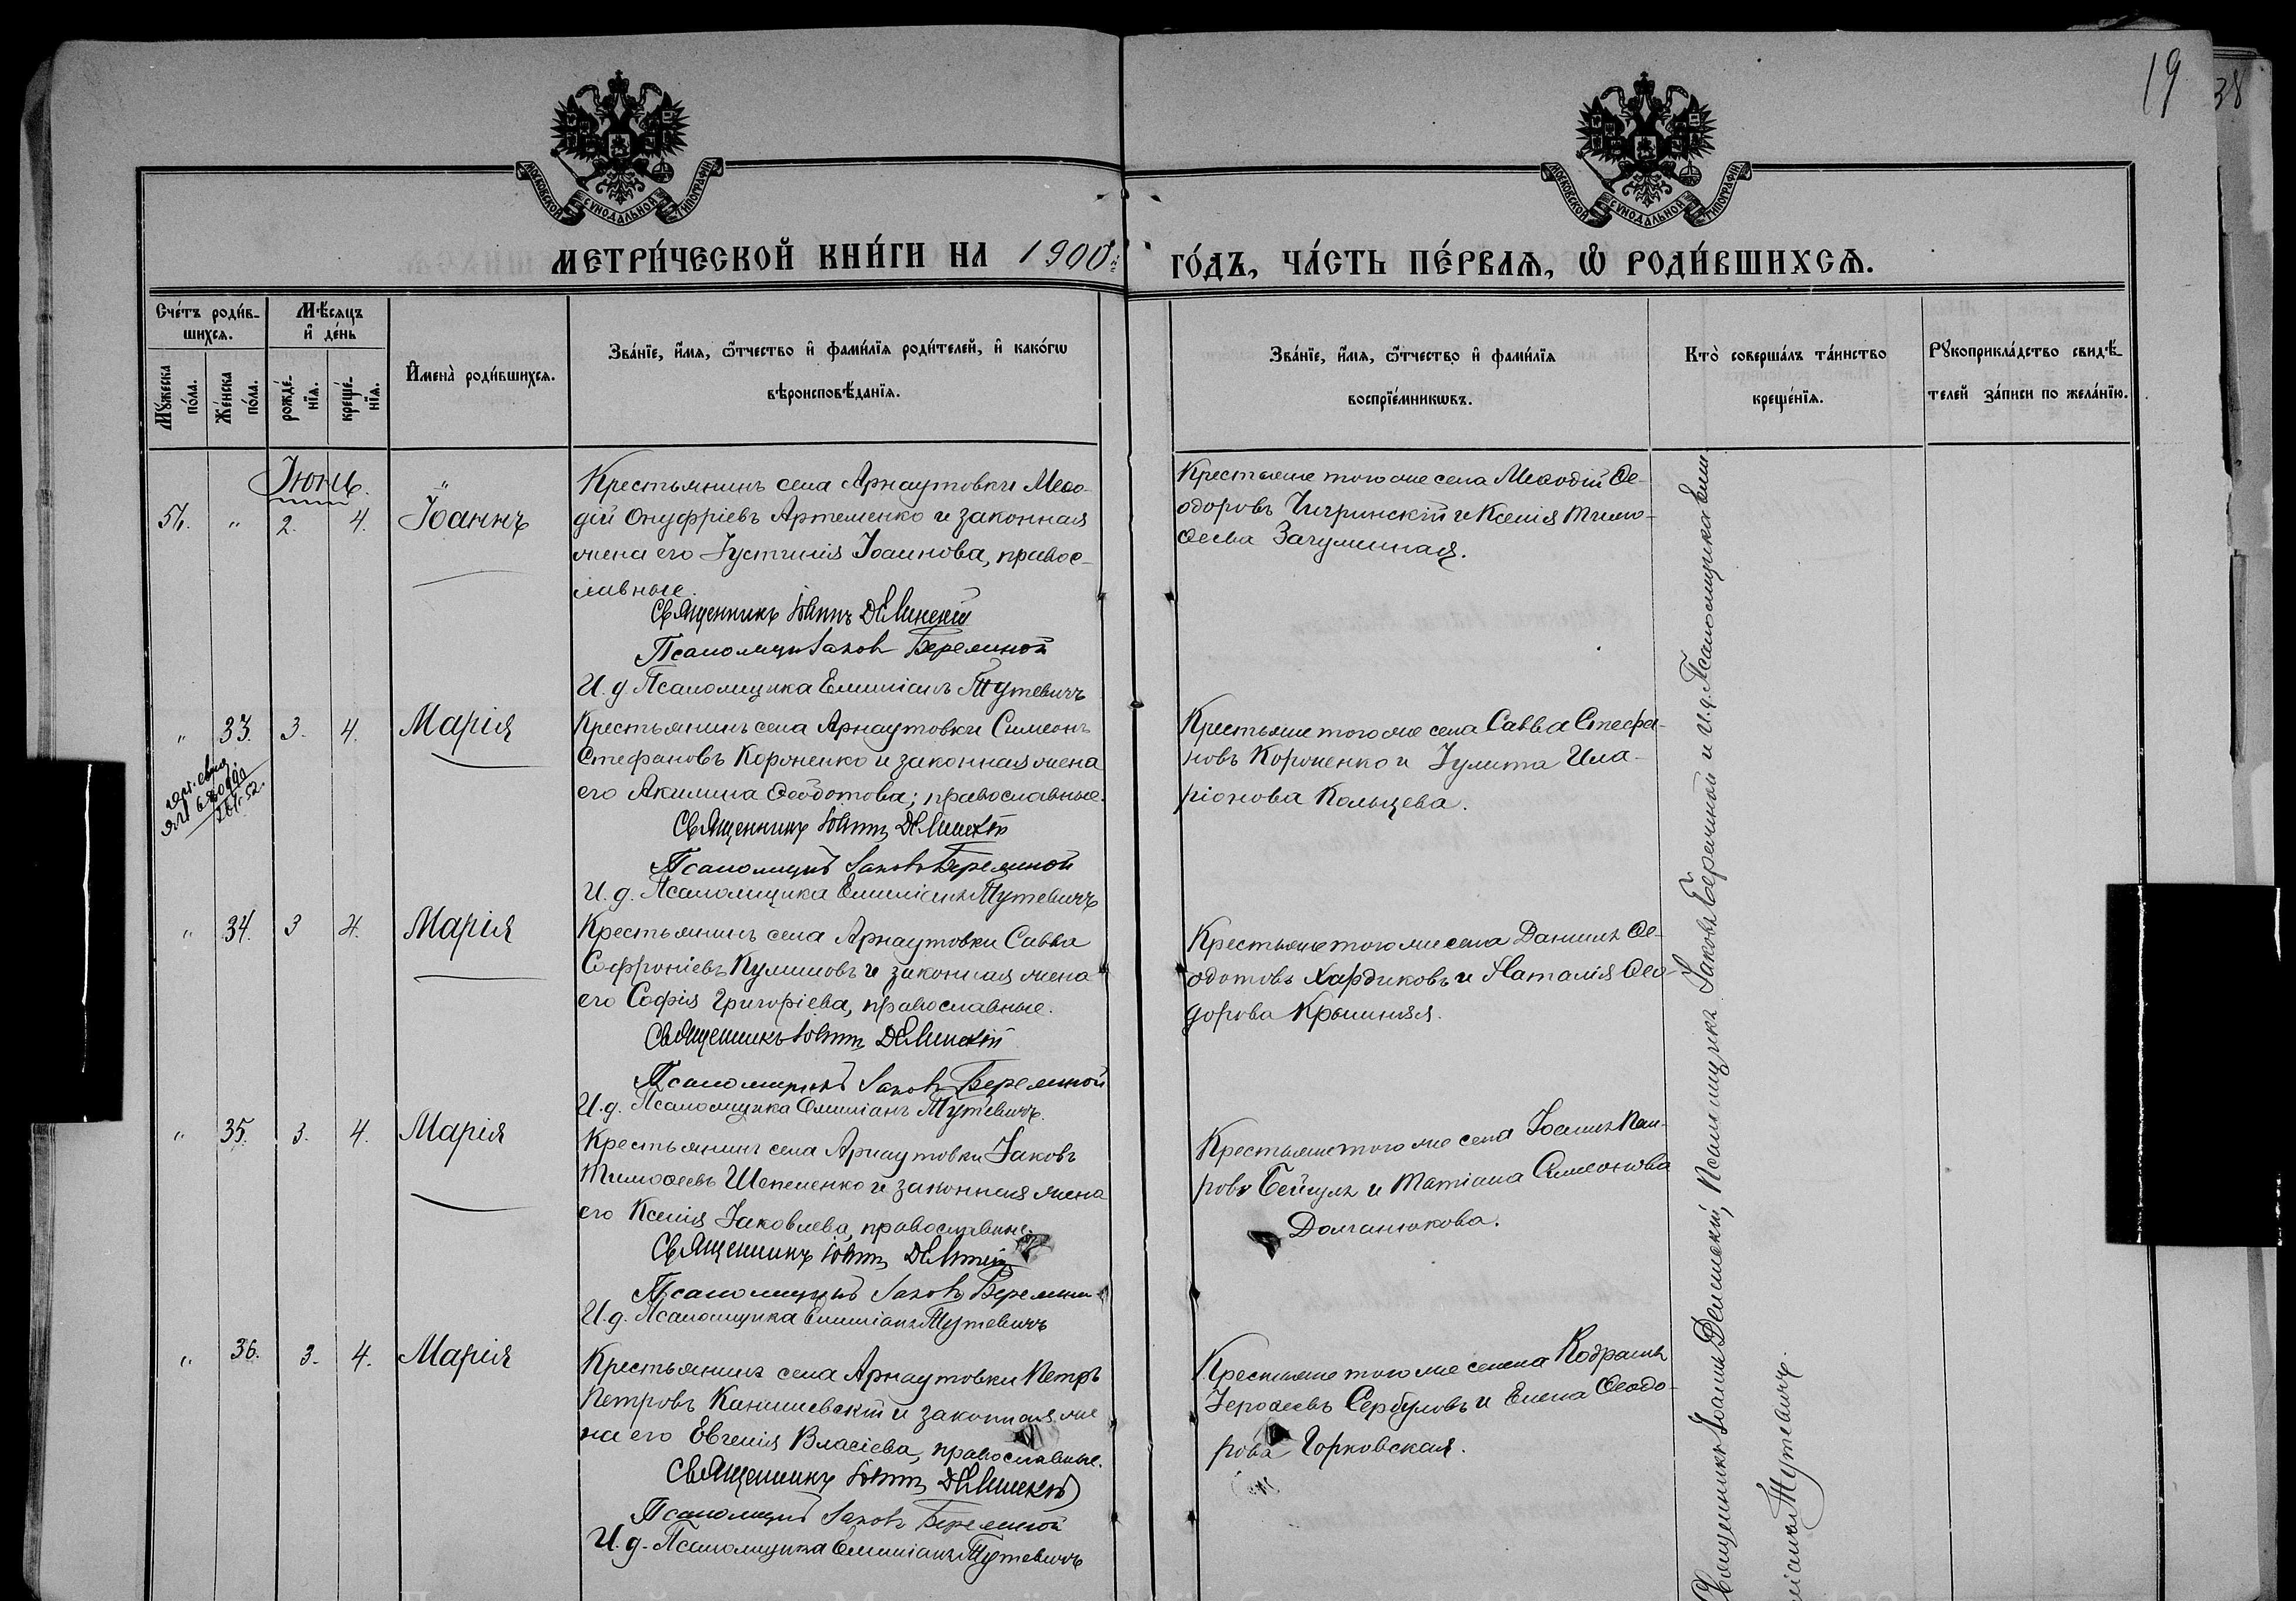 19
38
МОСКОВСКОЙ СУНОДАЛЬНОЙ ТИПОГРАФІИ
МОСКОВСКОЙ СУНОДАЛЬНОЙ ТИПОГРАФІИ
МЕТРИ́ЧЕСКОЙ КНИ́ГИ НА 1900й
ГО́ДЪ, ЧА́СТЬ ПЕ́РВАѦ, Ѡ РОДИ́ВШИХСѦ.
Сче́тъ роди́в-
шихсѧ.
Мꙋ́жеска по́ла.
Же́нска по́ла.
Мѣ́сѧцъ
и҆ де́нь
рожде́-
нїѧ.
креще́-
нїѧ.
И҆мена̀ роди́вшихсѧ.
Зва́нїе, и҆́мѧ, ѻ҆́тчество и҆ фами́лїѧ роди́телей, и҆ како́гѡ
вѣроисповѣ́данїѧ.
Зва́нїе, и҆́мѧ, ѻ҆́тчество и҆ фами́лїѧ
воспрїе́мникѡвъ.
Кто̀ соверша́лъ та́инство
креще́нїѧ.
Рꙋкоприкла́дство свидѣ́-
телей за́писи по жела́нїю.
Іюль.
" 2. 4. Іоаннъ
Крестьянинъ села Арнаутовки Меѳо-
дій Онуфріевъ Артеменко и законная
жена его Іустинія Іоаннова, правос-
лавные.
Священникъ Іоаннъ Делинскій
Псаломщикъ Іаковъ Бережной
И. д. Псаломщика Емиліанъ Мутевичъ
Крестьяне того же села Меѳодій Ѳе-
одоровъ Чигринскій и Ксенія Тимо-
ѳеева Загуменная.
" 33. 3. 4. Марія
Крестьянинъ села Арнаутовки Симеонъ
Стефановъ Короненко и законная жена
его Акилина Ѳеодотова; православные.
Священникъ Іоаннъ Делинскій
Псаломщикъ Іаковъ Бережной
И. д. Псаломщика Емиліанъ Мутевичъ
Крестьяне того же села Савва Стефа-
новъ Короненко и Іулита Ила-
ріонова Кольцева.
" 34. 3 4. Марія
Крестьянинъ села Арнаутовки Савва
Софроніевъ Кулишовъ и законная жена
его Софія Григоріева, православные.
Священникъ Іоаннъ Делинскій
Псаломщикъ Іаковъ Бережной
И. д. Псаломщика Емиліанъ Мутевичъ.
Крестьяне того же села Даниилъ Ѳе-
одотовъ Хардиковъ и Наталія Ѳео-
дорова Крышняя.
" 35. 3. 4. Марія
Крестьянинъ села Арнаутовки Іаковъ
Тимоѳеевъ Шепеленко и законная жена
его Ксенія Іаковлева, православные.
Священникъ Іоаннъ
Псаломщикъ Іаковъ Бережной
И. д. Псаломщика Емиліанъ Мутевичъ
Крестьяне того же села Іоаннъ
Бейгулъ и Татіана Симеонова
Долганюкова.
" 36. 3. 4. Марія
Крестьянинъ села Арнаутовки Петръ
Петровъ Канишевскій и законная же
на его Евгенія Власіева, православные.
Священникъ Іоаннъ Делинскій
Псаломщикъ Іаковъ Бережной
И. д. Псаломщика Емиліанъ Мутевичъ
Крестьяне того же села Кодратъ
Іероѳеевъ Сербуловъ и Елена Ѳеодо-
рова Горковская.
Священникъ Іоаннъ Делинскій, Псаломщикъ Іаковъ Бережной и И. д. Псаломщика Еми
ліанъ Мутевичъ.